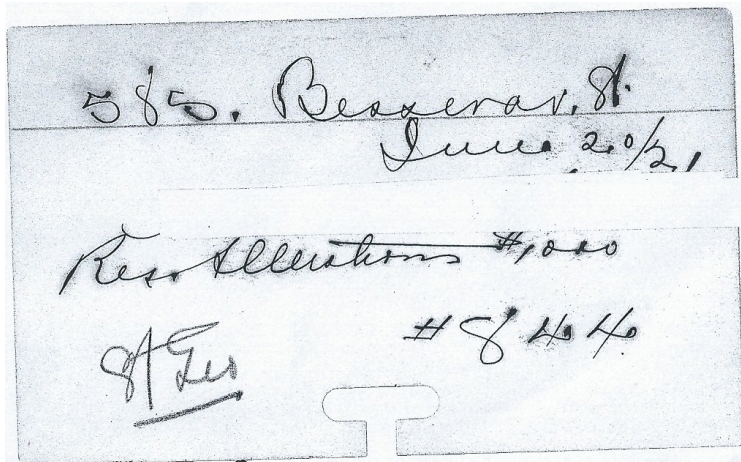 585. Besserer, St.
June 20/21
Res. Alterations $1,000
#844
St Geo